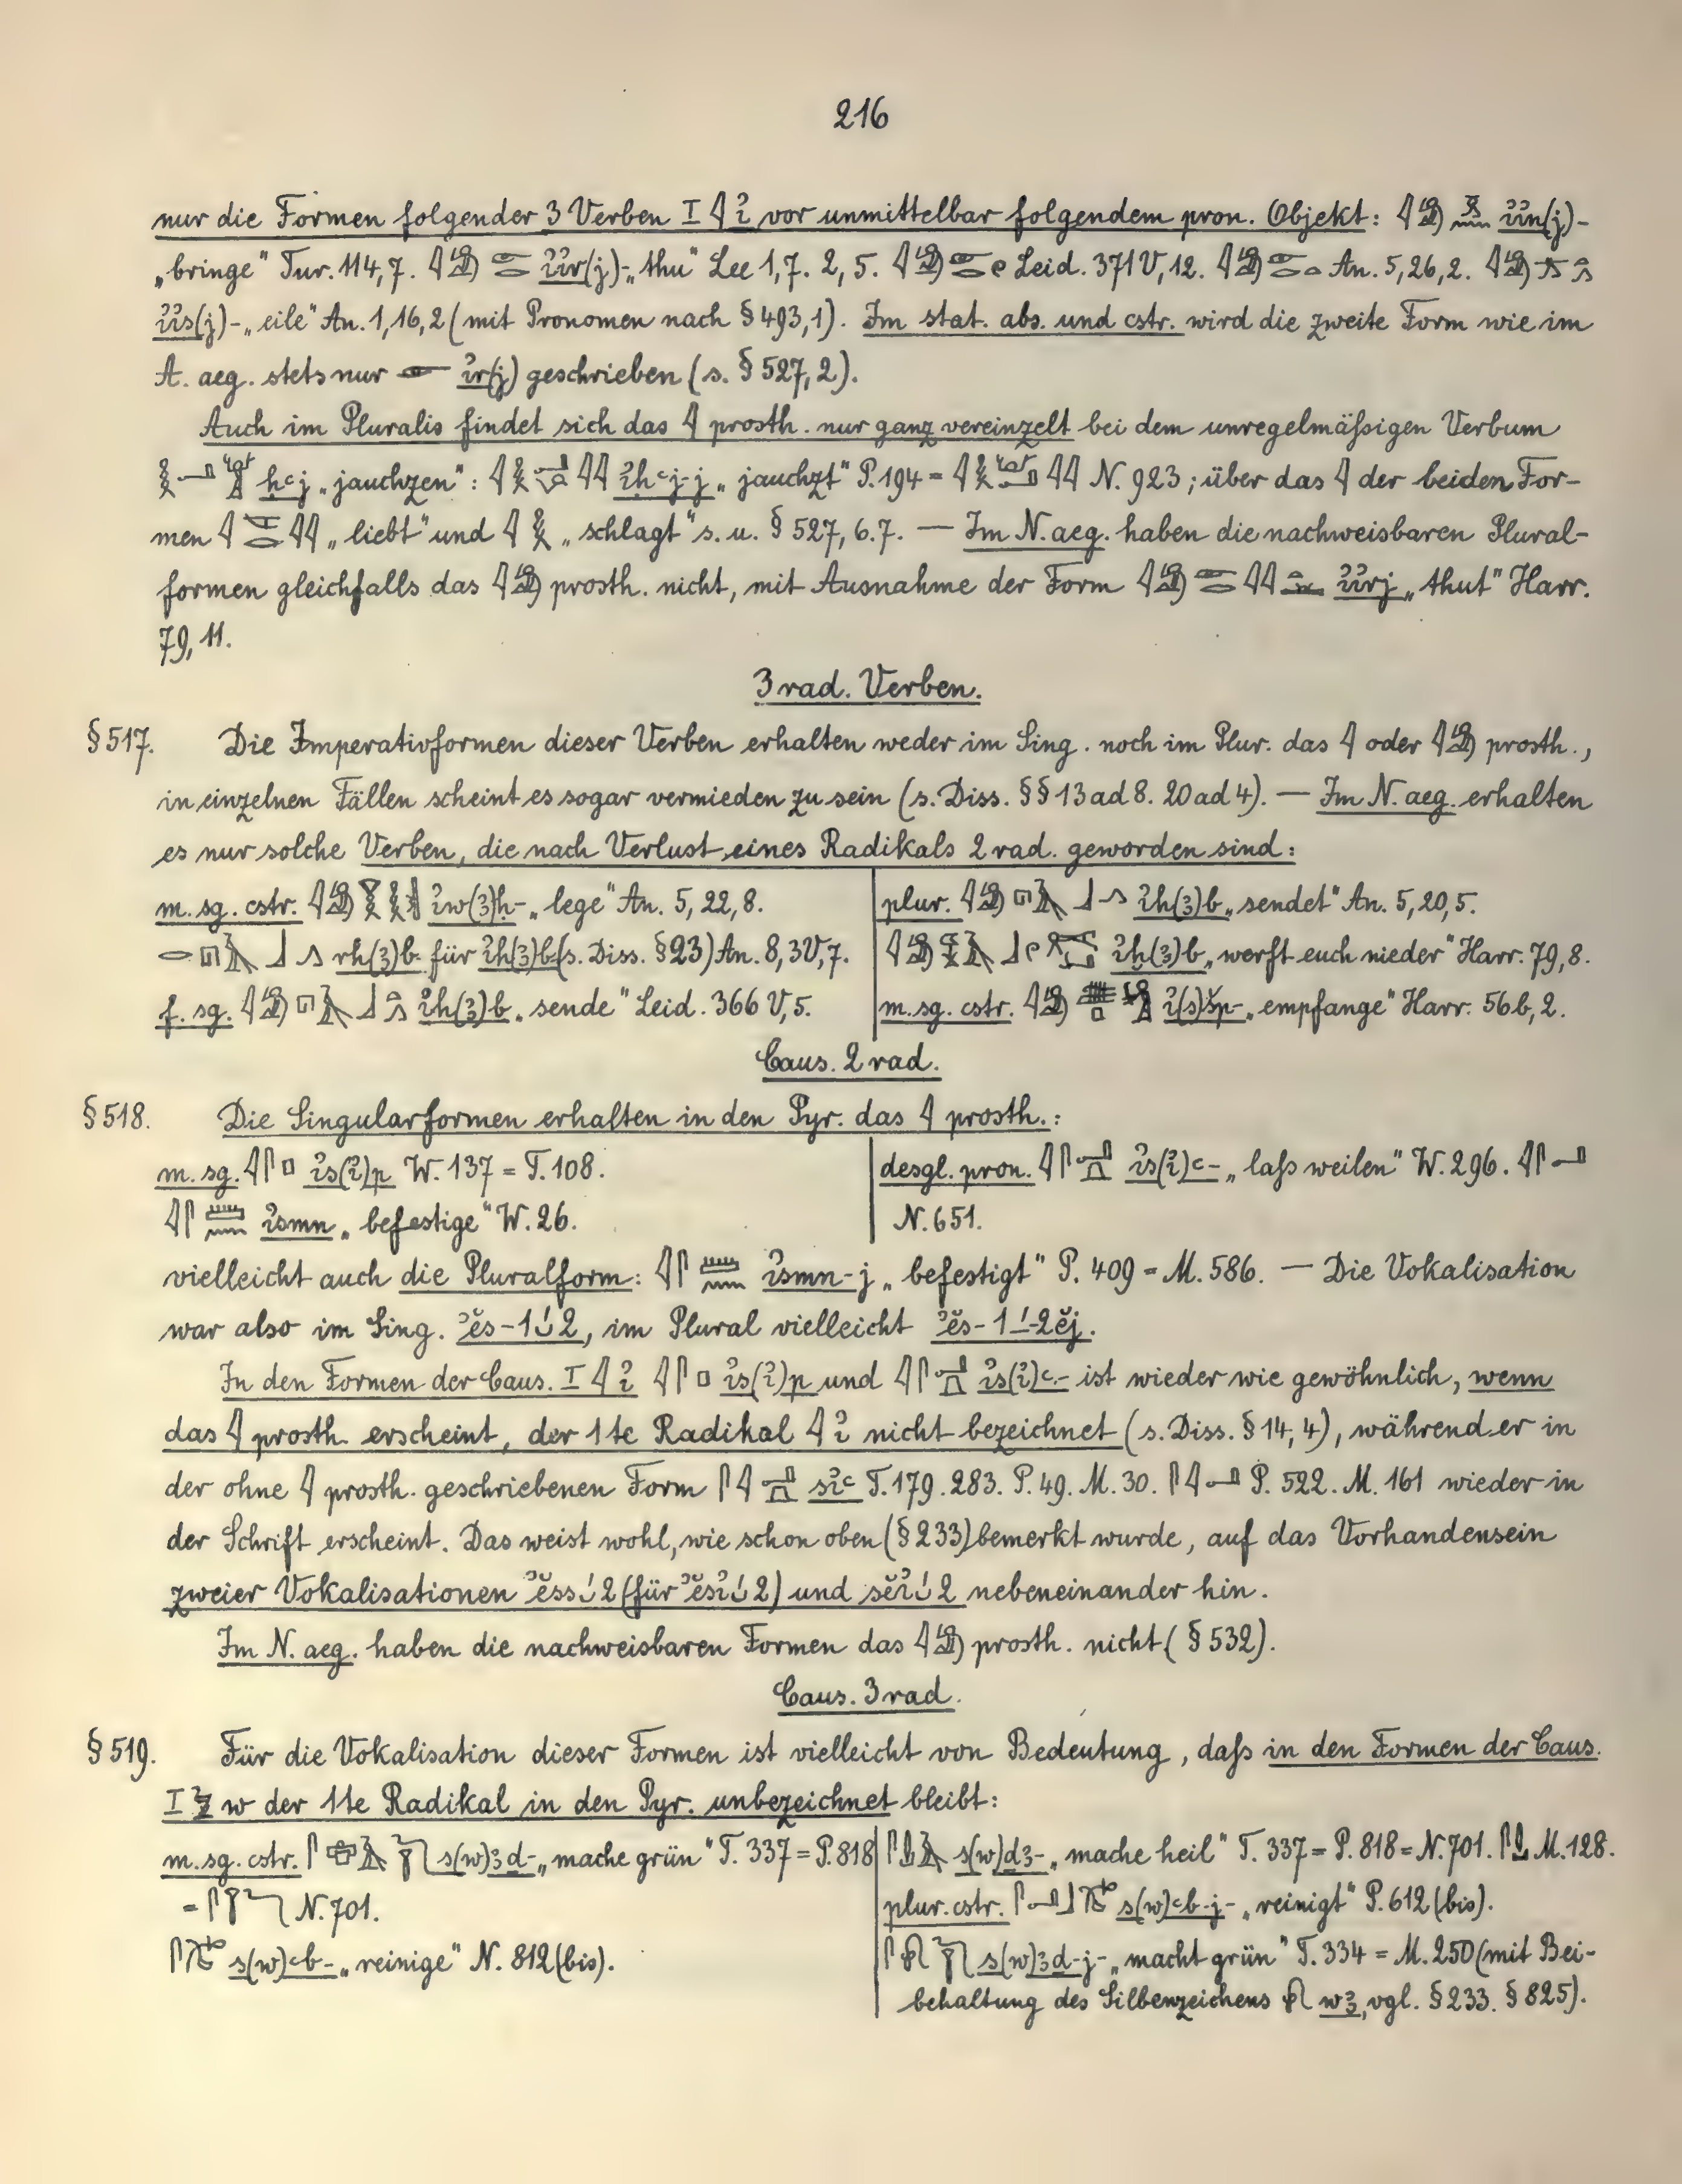 216
nur die Formen folgender 3 Verben I 𓇋 ỉ vor unmittelbar folgendem pron. Objekt: ỉỉn(j)-
„bringe“ Tur. 114,7. ỉỉr(j)- „thu“ Lee 1,7. 2,5. Leid. 371 V, 12. An. 5,26,2.
ỉỉs(j)- „eile“ An. 1,16,2 (mit Pronomen nach § 493,1). Im stat. abs. und cstr. wird die zweite Form wie im
A. aeg. stets nur 𓁹 ỉr(j) geschrieben (s. § 527,2).
Auch im Pluralis findet sich das 𓇋 prosth. nur ganz vereinzelt bei dem unregelmäßigen Verbum
ḥꜥj „jauchzen“: ỉḥꜥj-j „jauchzt“ P. 194 = N. 923; über das 𓇋 der beiden For-
men „liebt“ und „schlagt“ s. u. § 527, 6.7. — Im N. aeg. haben die nachweisbaren Plural-
formen gleichfalls das prosth. nicht, mit Ausnahme der Form ỉỉrj „thut“ Harr.
79, 11.
3 rad. Verben.
§ 517. Die Imperativformen dieser Verben erhalten weder im Sing. noch im Plur. das 𓇋 oder 𓇋𓀁 prosth.,
in einzelnen Fällen scheint es sogar vermieden zu sein (s. Diss. §§ 13 ad 8. 20 ad 4). — Im N. aeg. erhalten
es nur solche Verben, die nach Verlust eines Radikals 2 rad. geworden sind:
m. sg. cstr. ỉw(ꜣ)ḥ- „lege“ An. 5, 22, 8.
rh(ꜣ)b für ỉh(ꜣ)b (s. Diss. § 23) An. 8, 3 V, 7.
f. sg. ỉh(ꜣ)b „sende“ Leid. 366 V, 5.
plur. ỉh(ꜣ)b „sendet“ An. 5, 20, 5.
ỉḫ(ꜣ)b „werft euch nieder“ Harr. 79, 8.
m. sg. cstr. ỉ(s)šp- „empfange“ Harr. 56 b, 2.
Caus. 2 rad.
§ 518. Die Singularformen erhalten in den Pyr. das 𓇋 prosth.:
m. sg. 𓇋𓋴𓊪 ỉs(ỉ)p W. 137 = T. 108.
𓇋𓋴𓏠𓈖 ỉsmn „befestige“ W. 26.
desgl. pron. ỉs(ỉ)ꜥ- „laß weilen“ W. 296. 𓇋𓋴𓂝
N. 651.
vielleicht auch die Pluralform: 𓇋𓋴𓏠𓈖 ỉsmn-j „befestigt“ P. 409 = M. 586. — Die Vokalisation
war also im Sing. ʾĕs-1 ̆́2, im Plural vielleicht ʾĕs-1 ̄́-2ĕj.
In den Formen der Caus. I 𓇋 ỉ 𓇋𓋴𓊪 ỉs(ỉ)p und ỉs(ỉ)ꜥ- ist wieder wie gewöhnlich, wenn
das 𓇋 prosth. erscheint, der 1te Radikal 𓇋 ỉ nicht bezeichnet (s. Diss. § 14, 4), während er in
der ohne 𓇋 prosth. geschriebenen Form sỉꜥ T. 179. 283. P. 49. M. 30. 𓋴𓇋𓂝 P. 522. M. 161 wieder in
der Schrift erscheint. Das weist wohl, wie schon oben (§ 233) bemerkt wurde, auf das Vorhandensein
zweier Vokalisationen ʾĕss ̆́2 (für ʾĕsỉ ̆́2) und sĕỉ ̆́2 nebeneinander hin.
Im N. aeg. haben die nachweisbaren Formen das 𓇋𓀁 prosth. nicht (§ 532).
Caus. 3 rad.
§ 519. Für die Vokalisation dieser Formen ist vielleicht von Bedeutung, daß in den Formen der Caus.
I 𓅱 w der 1te Radikal in den Pyr. unbezeichnet bleibt:
m. sg. cstr. s(w)ꜣd- „mache grün“ T. 337 = P. 818
= N. 701.
s(w)ꜥb- „reinige“ N. 812 (bis).
s(w)dꜣ- „mache heil“ T. 337 = P. 818 = N. 701. M. 128.
plur. cstr. s(w)ꜥb-j- „reinigt“ P. 612 (bis).
s(w)ꜣd-j- „macht grün“ T. 334 = M. 250 (mit Bei-
behaltung des Silbenzeichens 𓍯 wꜣ, vgl. § 233. § 825).